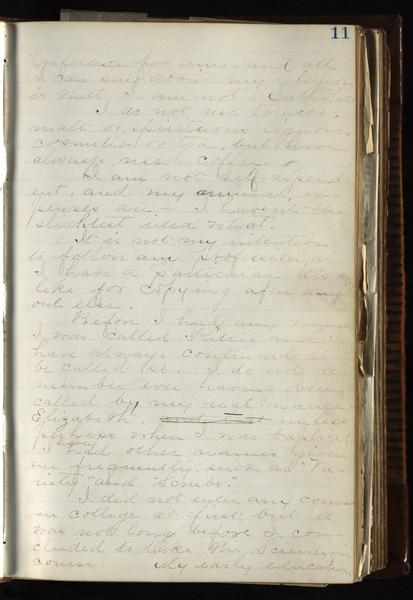 11
preference for any, and all
I can say about my religion
is that I am not a Catholic.
I do not use tobacco,
malt or spirituous liquors,
cosmetics or tea, but have
always used coffee.
I am not self-depend-
ent, and my annual ex-
penses are — I havent the
slightest idea what.
It is not my intention
to follow any profession, as
I have a particular dis-
like for copying after any
one else.
Before I had any
I was called and
have always continued to
be called so. I do not re-
member ever having been
called by my real name
Elizabeth, unless
perhaps when I was baptized
I have had other names given
me frequently, such as "Va-
riety" and "Bimbo."
I did not enter any course
in college at first but it
was not long before I con-
cluded to take the Scientific
Course My early education